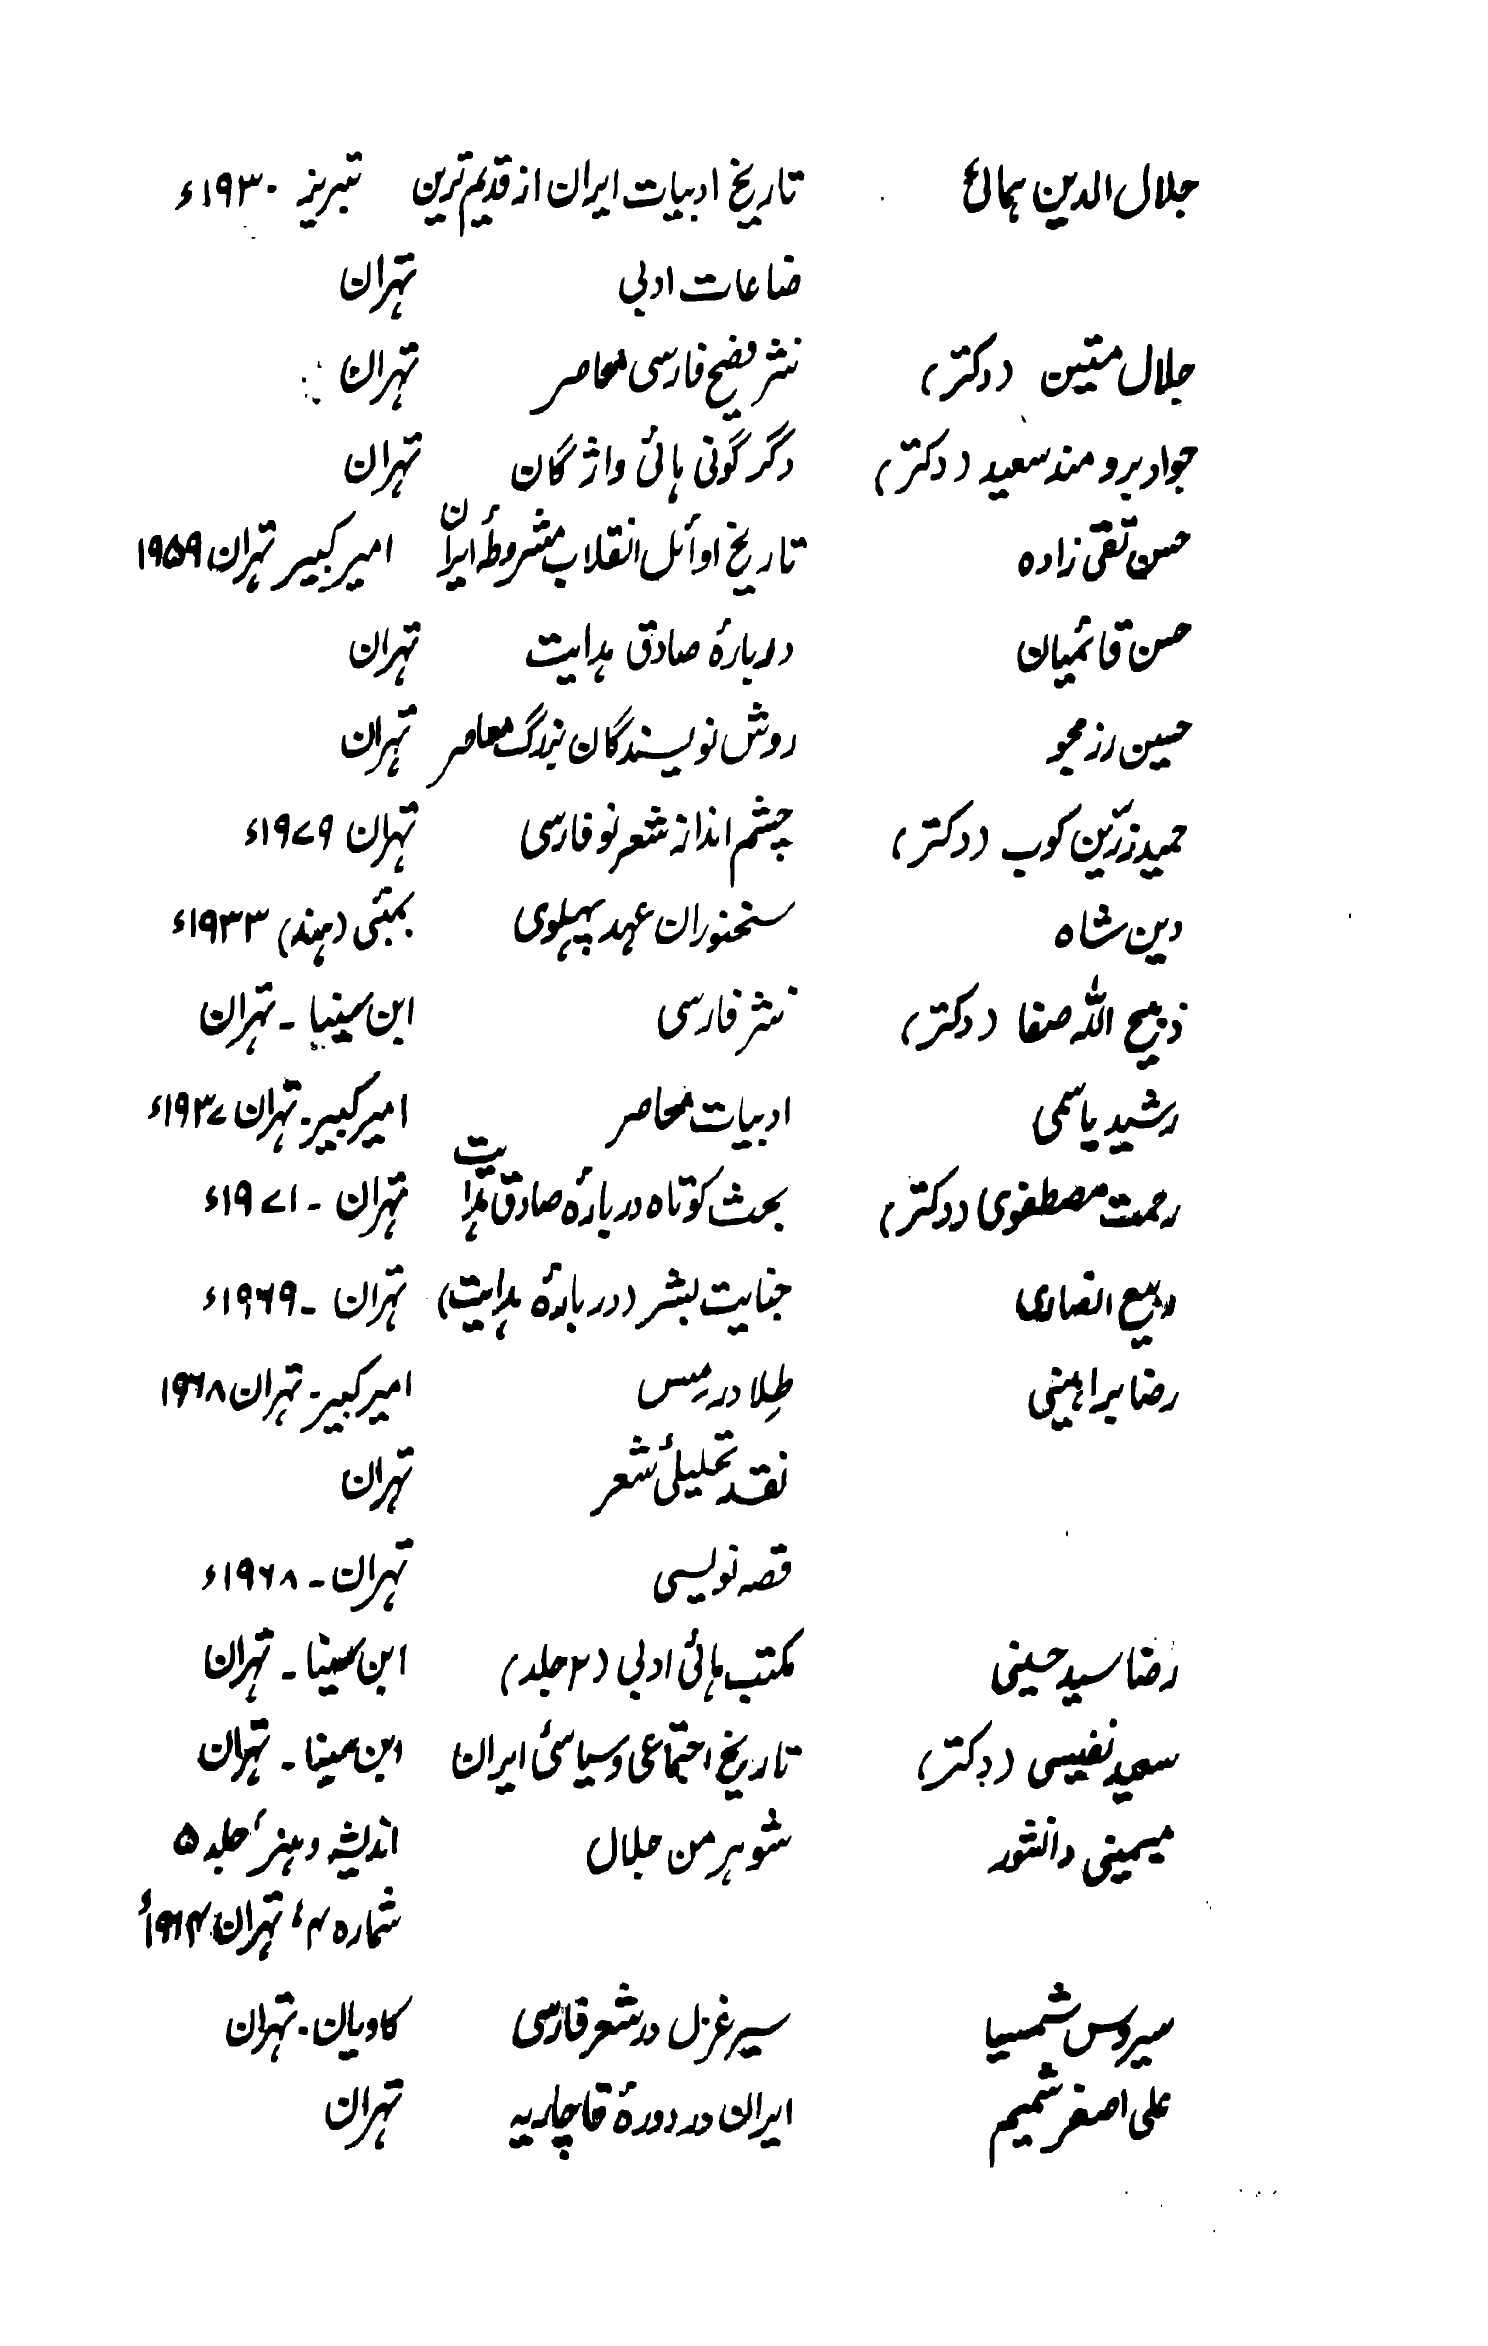 جلال الدین ہمائی تاریخ ادبیات ایران از قدیم ترین تبریز ۱۹۳۰ء
ضاعات ادبی تہران
جلال متین (دکتر) نثر فصیح فارسی معاصر تہران
جواد برومند سعید (دکتر) دگرگونی ہائی واژگان تہران
حسن تقی زادہ تاریخ اوائل انقلاب مشروطۂ ایران امیر کبیر تہران ۱۹۵۹
حسن قائمیان دربارۂ صادق ہدایت تہران
حسین رزمجو روش نویسندگان بزرگ معاصر تہران
حمید زرّین کوب (دکتر) چشم انداز شعر نو فارسی تہران ۱۹۷۹ء
دین شاہ سخنوران عہد پہلوی بمبئی (ہند) ۱۹۳۳ء
ذبیح اللہ صفا (دکتر) نثر فارسی ابن سینا ۔ تہران
رشید یاسمی ادبیات معاصر امیر کبیر۔ تہران ۱۹۳۷ء
رحمت مصطفوی (دکتر) بحث کوتاہ دربارۂ صادق ہدایت تہران ۔ ۱۹۷۱ء
ربیع انصاری جنایت بشر (دربارۂ ہدایت) تہران ۔ ۱۹۶۹ء
رضا براہینی طِلا در مِس امیر کبیر۔ تہران ۱۹۶۸
نقد تحلیلیٔ شعر تہران
قصہ نویسی تہران ۔ ۱۹۶۸ء
رضا سید حسینی مکتب ہائی ادبی (۲ جلد) ابن سینا ۔ تہران
سعید نفیسی (دکتر) تاریخ اجتماعی و سیاسیٔ ایران ابن سینا ۔ تہران
سیمینی دانشور شوہر من جلال اندیشہ و ہنر، جلد ۵
شمارہ ۴، تہران ۱۹۶۴ء
سیروس شمسیا سیر غزل در شعر فارسی کاویان۔ تہران
علی اصغر شمیم ایران در دورۂ قاچاریہ تہران